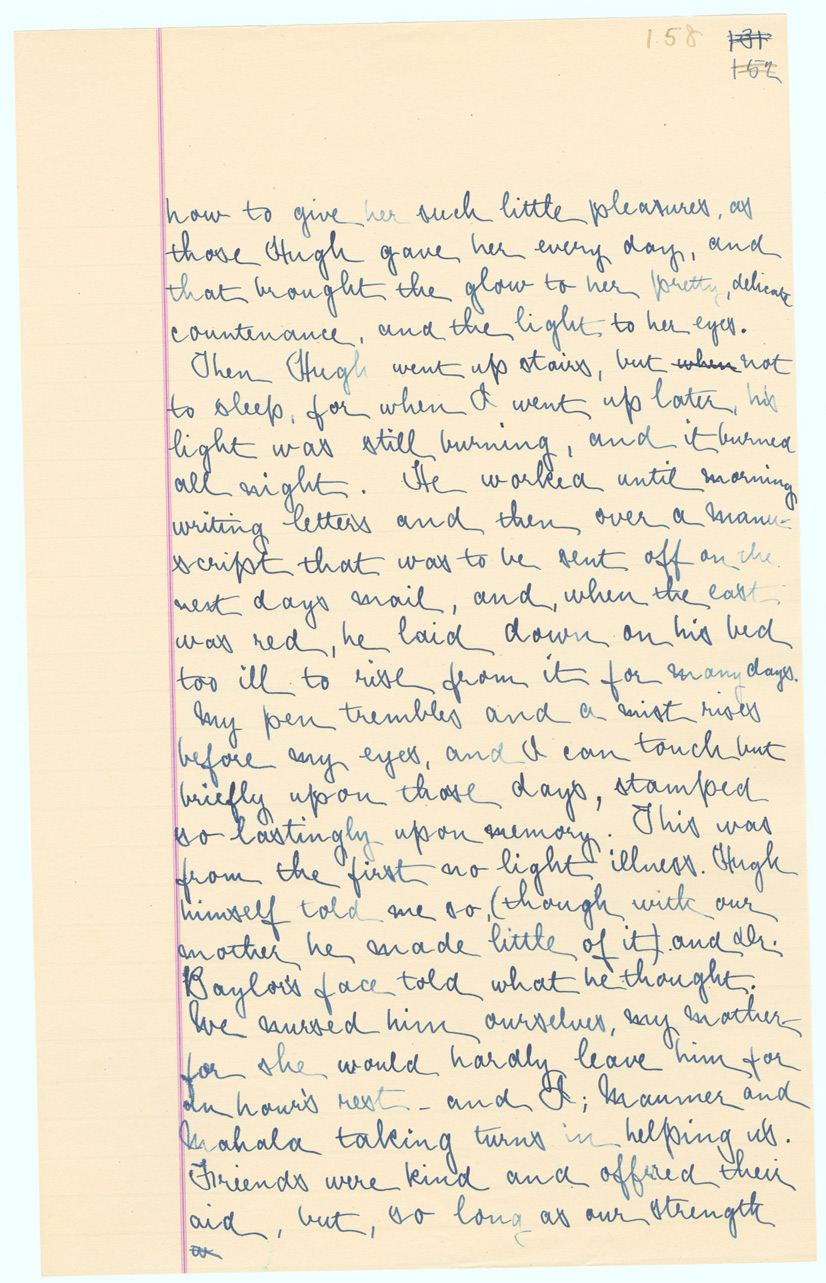 158 131
152
how to give her such little pleasures, as
those Hugh gave her every day, and
that brought the glow to her pretty, delicate
countenance, and the light to her eyes.
Then Hugh went up stairs, but when not
to sleep, for when I went up later, his
light was still burning, and it burned
all night. He worked until morning
writing letters and then over a manu-
script that was to be sent off on the
next days mail, and, when the east
was red, he laid down on his bed
too ill to rise from it for many days.
My pen trembles and a mist rises
before my eyes, and I can touch but
briefly upon those days, stamped
so lastingly upon memory. This was
from the first no light illness. Hugh
himself told me so, (though with our
mother he made little of it) and Dr.
Baylor's face told what he thought.
We nursed him ourselves, my mother-
for she would hardly leave him for
an hour's rest - and I; Maumer and
Mahala taking turns in helping us.
Friends were kind and offered their
aid, but, so long as our strength